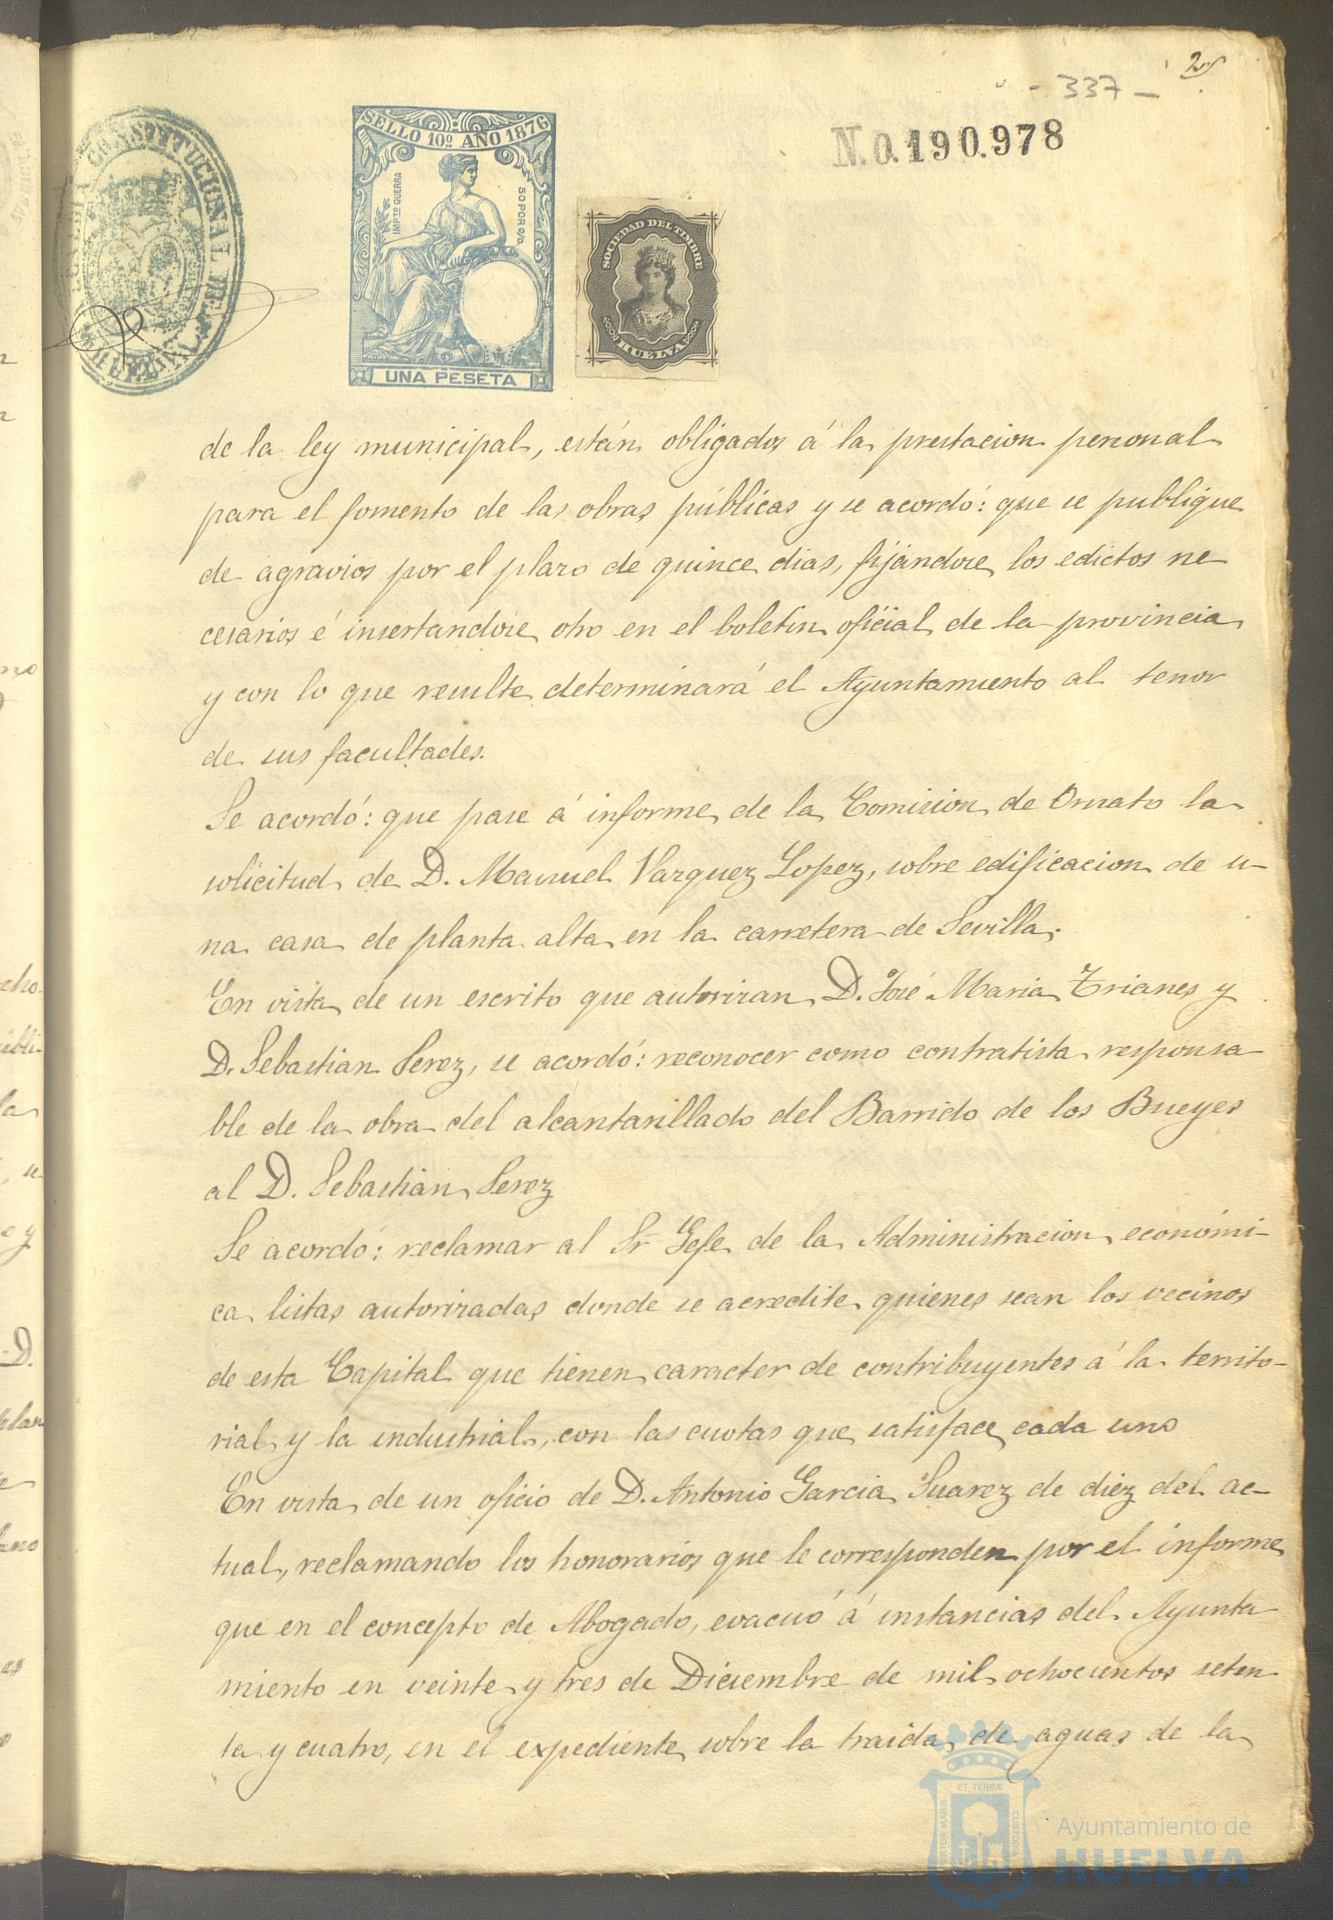 25
- 337 -
N. 0.190.978
CONSTITUCIONAL DE
HUELVA
SELLO 10º AÑO 1876
IMPTO GUERRA
50 POR O/O
UNA PESETA
SOCIEDAD DEL TIMBRE
HUELVA
de la ley municipal, están obligados á la prestacion personal
para el fomento de las obras públicas y se acordó: que se publique
de agravios por el plazo de quince dias, fijándose los edictos ne
cesarios é insertandose otro en el boletin oficial de la provincia
y con lo que resulte determinará el Ayuntamiento al tenor
de sus facultades.
Se acordó: que pase á informe de la Comision de Ornato la
solicitud de D. Manuel Vazquez Lopez, sobre edificacion de u-
na casa de planta alta en la carretera de Sevilla.
En vista de un escrito que autorizan D. José Maria Trianes y
D. Sebastian Perez, se acordó: reconocer como contratista responsa-
ble de la obra del alcantarillado del Barrido de los Bueyes
al D. Sebastian Perez
Se acordó: reclamar al Sr Gefe de la Administracion económi-
ca listas autorizadas donde se acredite quienes sean los vecinos
de esta Capital que tienen caracter de contribuyentes á la territo-
rial y la industrial, con las cuotas que satisface cada uno
En vista de un oficio de D. Antonio Garcia Suarez de diez del ac-
tual, reclamando los honorarios que le corresponden por el informe
que en el concepto de Abogado, evacuó á instancias del Ayunta
miento en veinte y tres de Diciembre de mil ochocientos seten
ta y cuatro, en el expediente sobre la traida de aguas de la
PORTUS MARIS ET TERRÆ CUSTODIA
Ayuntamiento de
HUELVA